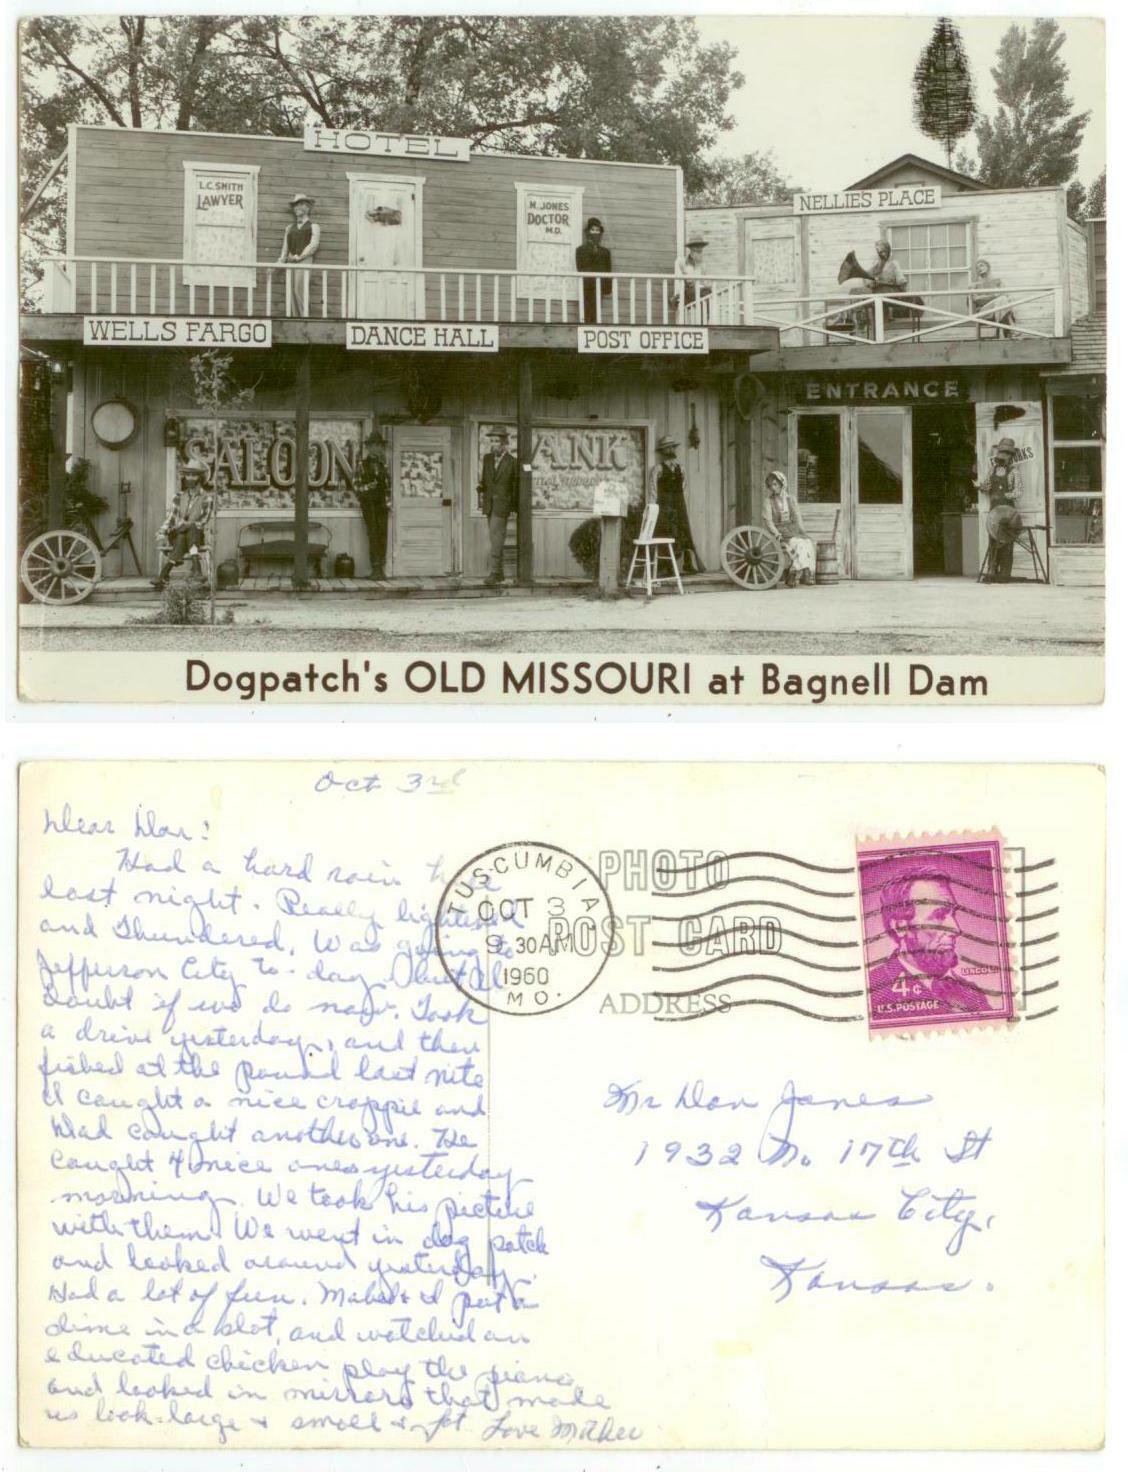 HOTEL
L.C. SMITH
LAWYER
M. JONES
DOCTOR
M.D.
NELLIES PLACE
WELLS FARGO
DANCE HALL
POST OFFICE
ENTRANCE
SALOON
ANK
Dogpatch's OLD MISSOURI at Bagnell Dam
Oct 3rd
Dear Don:
Had a hard rain here
last night. Really lightened
and Thundered. Was going to
Jefferson City to-day, but I
doubt if we do now. Took
a drive yesterday, and then
fished at the pound last nite
I caught a nice croppie and
Dad caught another one. He
caught 4 nice ones yesterday
morning. We took his picture
with them. We went in dog patch
and looked around yesterday.
Had a lot of fun. Mabel & I put a
dime in a slot, and watched an
educated chicken play the piano
and looked in mirrors that made
us look large & small & fat Love Mother
TUSCUMBIA
OCT 3
9 30 AM
1960
MO.
PHOTO
POST CARD
ADDRESS
LINCOLN
4¢
U.S. POSTAGE
Mr Don Jones
1932 No. 17th St
Kansas City,
Kansas.